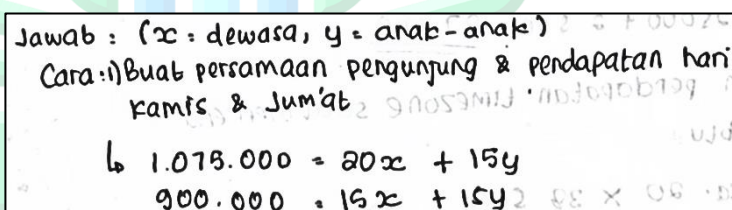 Jawab : (x = dewasa, y = anak-anak)
Cara : 1) Buat persamaan pengunjung & pendapatan hari
kamis & Jum'at
↳ 1.075.000 = 20x + 15y
900.000 = 15x + 15y